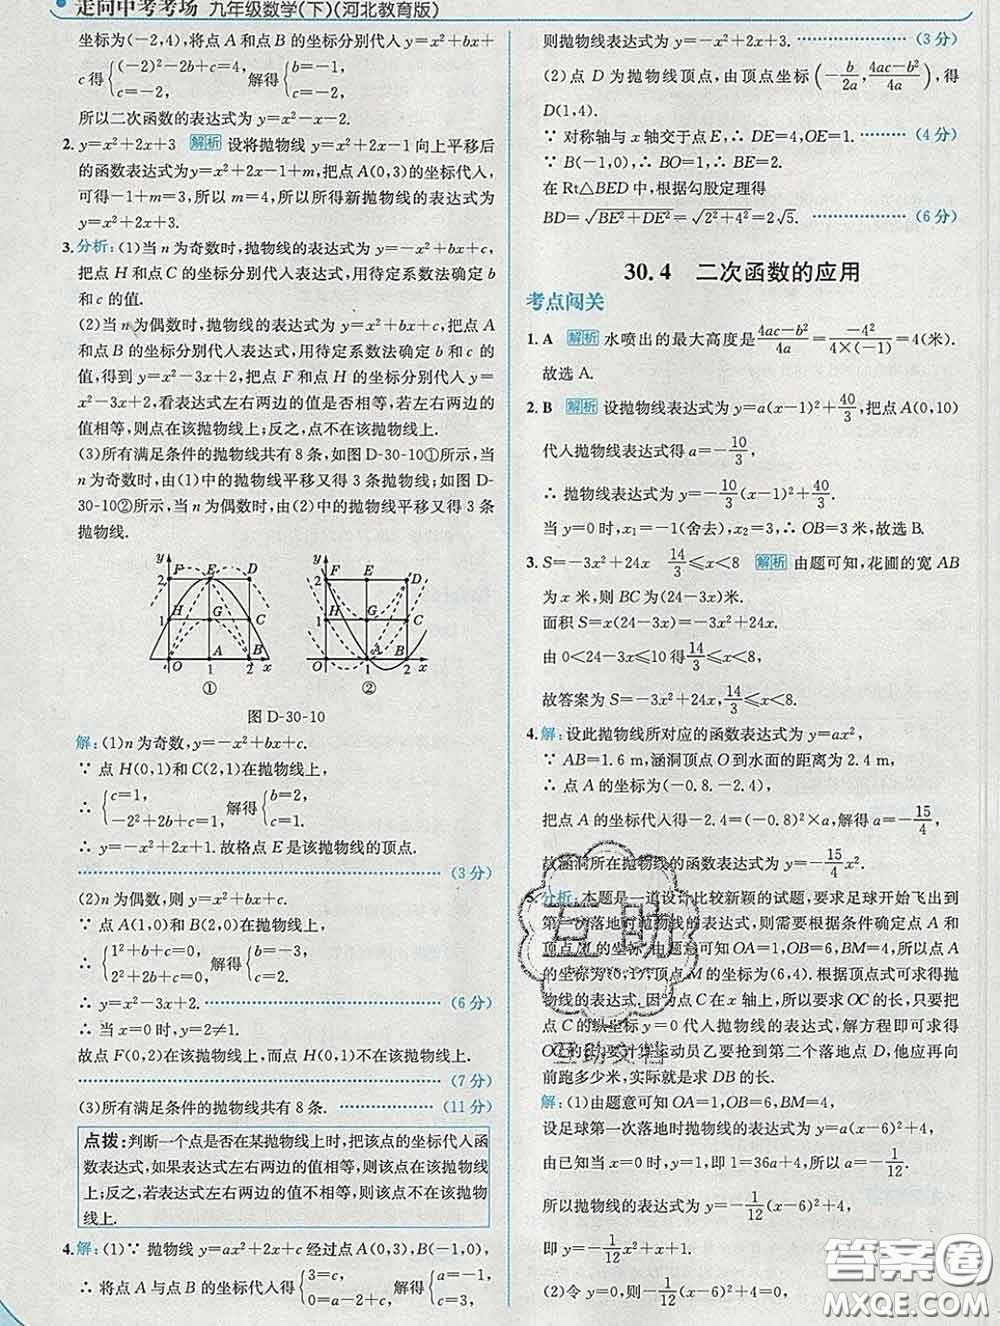 走向中考考场 九年级数学(下)(河北教育版)
坐标为(-2,4),将点 A 和点 B 的坐标分别代入 y=x²+bx+
c 得{(-2)²-2b+c=4, c=-2, 解得{b=-1, c=-2,
所以二次函数的表达式为 y=x²-x-2.
2. y=x²+2x+3 解析 设将抛物线 y=x²+2x-1 向上平移后
的函数表达式为 y=x²+2x-1+m,把点 A(0,3)的坐标代入,
可得-1+m=3,所以 m=4,所以所得新抛物线的表达式为
y=x²+2x+3.
3. 分析:(1)当 n 为奇数时,抛物线的表达式为 y=-x²+bx+c,
把点 H 和点 C 的坐标分别代入表达式,用待定系数法确定 b
和 c 的值.
(2)当 n 为偶数时,抛物线的表达式为 y=x²+bx+c,把点 A
和点 B 的坐标分别代入表达式,用待定系数法确定 b 和 c 的
值,得到 y=x²-3x+2,把点 F 和点 H 的坐标分别代入 y=
x²-3x+2,看表达式左右两边的值是否相等,若左右两边的值
相等,则点在该抛物线上;反之,点不在该抛物线上.
(3)所有满足条件的抛物线共有 8 条,如图 D-30-10①所示,当
n 为奇数时,由(1)中的抛物线平移又得 3 条抛物线;如图 D-
30-10②所示,当 n 为偶数时,由(2)中的抛物线平移又得 3 条
抛物线.
y 2 F E D H G C 1 O A B 1 2 x ①
y F E D 2 H G C 1 O A B 1 2 x ②
图 D-30-10
解:(1)n 为奇数,y=-x²+bx+c.
∵ 点 H(0,1)和 C(2,1)在抛物线上,
∴ {c=1, -2²+2b+c=1, 解得{b=2, c=1.
∴ y=-x²+2x+1. 故格点 E 是该抛物线的顶点.
(3 分)
(2)n 为偶数,则 y=x²+bx+c.
∵ 点 A(1,0)和 B(2,0)在抛物线上,
∴ {1²+b+c=0, 2²+2b+c=0, 解得{b=-3, c=2.
∴ y=x²-3x+2. (6 分)
∴ 当 x=0 时,y=2≠1.
故点 F(0,2)在该抛物线上,而点 H(0,1)不在该抛物线上.
(7 分)
(3)所有满足条件的抛物线共有 8 条. (11 分)
点拨:判断一个点是否在某抛物线上时,把该点的坐标代入函
数表达式,如果表达式左右两边的值相等,则该点在该抛物线
上;反之,若表达式左右两边的值不相等,则该点不在该抛物
线上.
4. 解:(1)∵ 抛物线 y=ax²+2x+c 经过点 A(0,3),B(-1,0),
∴ 将点 A 与点 B 的坐标代入得{3=c, 0=a-2+c, 解得{a=-1, c=3,
则抛物线表达式为 y=-x²+2x+3. (3 分)
(2)点 D 为抛物线顶点,由顶点坐标(-b/2a, (4ac-b²)/4a),得
D(1,4).
∵ 对称轴与 x 轴交于点 E,∴ DE=4,OE=1. (4 分)
∵ B(-1,0),∴ BO=1,∴ BE=2.
在 Rt△BED 中,根据勾股定理得
BD=√(BE²+DE²)=√(2²+4²)=2√5. (6 分)
30.4 二次函数的应用
考点闯关
1. A 解析 水喷出的最大高度是(4ac-b²)/4a=-4²/(4×(-1))=4(米).
故选 A.
2. B 解析 设抛物线表达式为 y=a(x-1)²+40/3,把点 A(0,10)
代入抛物线表达式得 a=-10/3,
∴ 抛物线表达式为 y=-10/3(x-1)²+40/3.
当 y=0 时,x₁=-1(舍去),x₂=3,∴ OB=3 米,故选 B.
3. S=-3x²+24x 14/3≤x<8 解析 由题可知,花圃的宽 AB
为 x 米,则 BC 为(24-3x)米.
面积 S=x(24-3x)=-3x²+24x.
由 0<24-3x≤10 得14/3≤x<8,
故答案为 S=-3x²+24x,14/3≤x<8.
4. 解:设此抛物线所对应的函数表达式为 y=ax²,
∵ AB=1.6 m,涵洞顶点 O 到水面的距离为 2.4 m,
∴ 点 A 的坐标为(-0.8,-2.4),
把点 A 的坐标代入得-2.4=(-0.8)²×a,解得 a=-15/4,
故涵洞所在抛物线的函数表达式为 y=-15/4x².
5. 分析:本题是一道设计比较新颖的试题,要求足球开始飞出到
第一次落地时抛物线的表达式,则需要根据条件确定点 A 和
顶点 M 的坐标,由题意可知 OA=1,OB=6,BM=4,所以点 A
的坐标为(0,1),顶点 M 的坐标为(6,4). 根据顶点式可求得抛
物线的表达式. 因为点 C 在 x 轴上,所以要求 OC 的长,只要把
点 C 的纵坐标 y=0 代入抛物线的表达式,解方程即可求得
OC的长. 要计算运动员乙要抢到第二个落地点 D,他应再向
前跑多少米,实际就是求 DB 的长.
解:(1)由题意可知 OA=1,OB=6,BM=4,
设足球第一次落地时抛物线的表达式为 y=a(x-6)²+4,
由已知当 x=0 时,y=1,即 1=36a+4,所以 a=-1/12.
所以抛物线的表达式为 y=-1/12(x-6)²+4,
即 y=-1/12x²+x+1.
(2)令 y=0,则-1/12(x-6)²+4=0,
互助
互助文档
答案卷
MXQE.COM